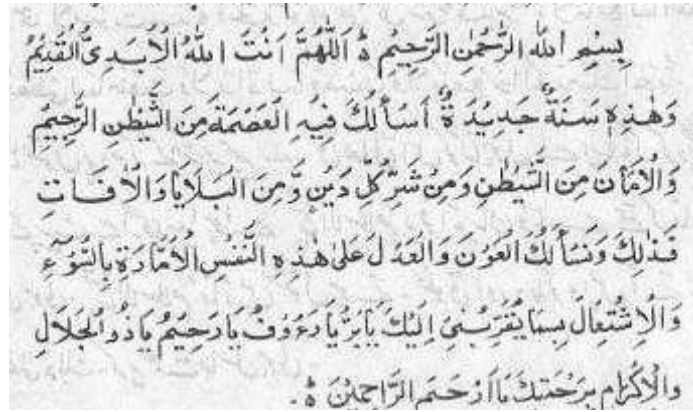 بِسْمِ اللهِ الرَّحْمٰنِ الرَّحِيْمِ ۃ اَللّٰهُمَّ اَنْتَ اللهُ الْاَبَدِیُّ الْقَدِيْمُ
وَهٰذِهٖ سَنَةٌ جَدِيْدَةٌ ۃ اَسْأَلُكَ فِيْهِ الْعَصْمَةَ مِنَ الشَّيْطٰنِ الرَّجِيْمِ
وَالْاَمَانَ مِنَ الشَّيْطٰنِ وَمِنْ شَرِّ كُلِّ دَيْنٍ وَّمِنَ الْبَلَايَا وَالْاٰفَاتِ
فَذٰلِكَ وَنَسْأَلُكَ الْعَوْنَ وَالْعَدْلَ عَلٰى هٰذِهِ النَّفْسِ الْاَمَّارَةِ بِالسُّوْٓءِ
وَالْاِشْتِغَالَ بِمَا يُقَرِّبُنِیْ اِلَيْكَ يَا بَرُّ يَا رَءُوْفُ يَا رَحِيْمُ يَا ذُوالْجَلَالِ
وَالْاِكْرَامِ بِرَحْمَتِكَ يَا اَرْحَمَ الرَّاحِمِيْنَ ۃ ۔